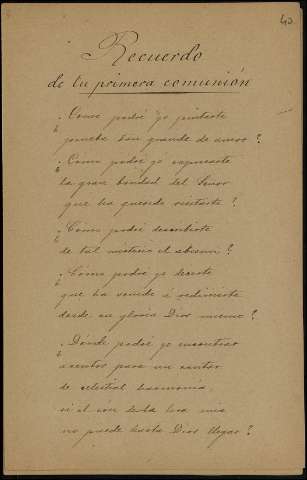 40
Recuerdo
de tu primera comunión
¿Como podré yo pintarte
prueba tan grande de amor?
¿Cómo podré yo expresarte
la gran bondad del Señor
que ha querido visitarte?
¿Cómo podré describirte
de tal misterio el abismo?
¿Cómo podré yo decirte
que ha venido á redimirte
desde su gloria Dios mismo?
¿Dónde podré yo encontrar
acentos para un cantar
de celestial harmonía,
si el són de la lira mia
no puede hasta Dios llegar?